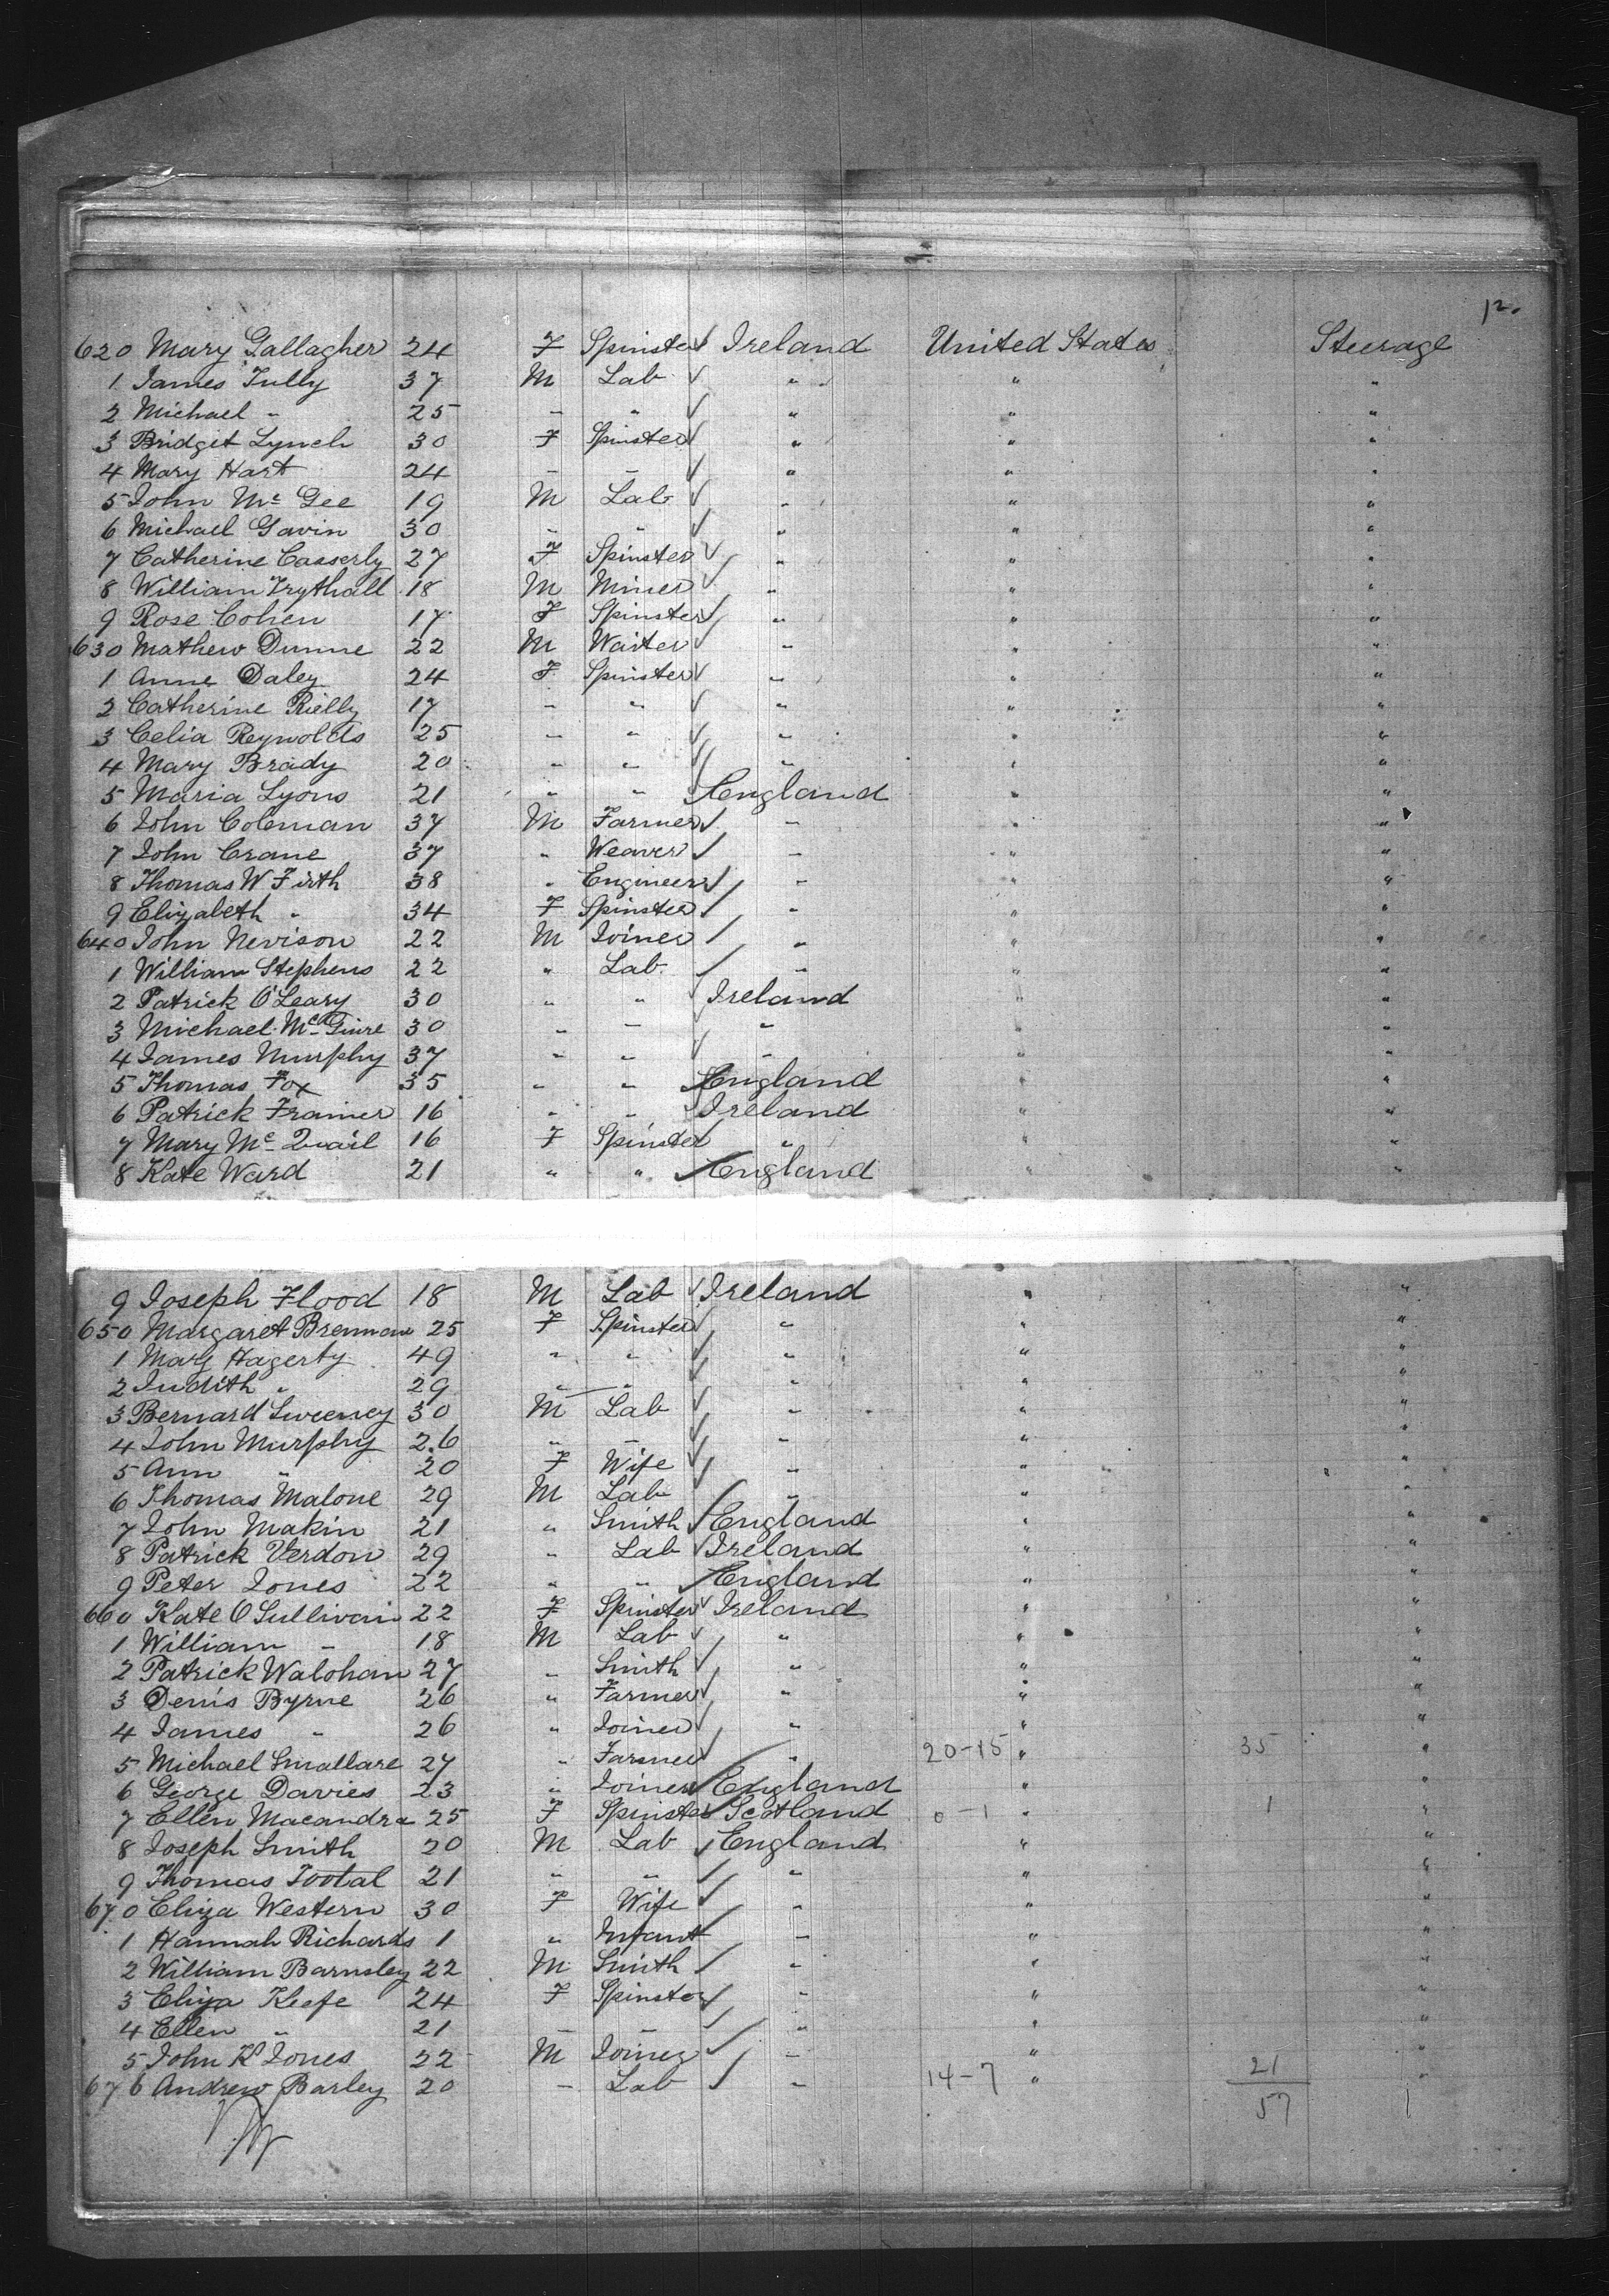 12.
620 Mary Gallagher 24 F Spinster Ireland United States Steerage
1 James Tully 37 M Lab " " "
2 Michael " 25 " " " " "
3 Bridget Lynch 30 F Spinster " " "
4 Mary Hart 24 " " " " "
5 John Mc Gee 19 M Lab " " "
6 Michael Gavin 30 " " " " "
7 Catherine Casserly 27 F Spinster " " "
8 William Trythall 18 M Miner " " "
9 Rose Cohen 17 F Spinster " " "
630 Mathew Dunne 22 M Waiter " " "
1 Anne Daley 24 F Spinster " " "
2 Catherine Rielly 17 " " " " "
3 Celia Reynolds 25 " " " " "
4 Mary Brady 20 " " " " "
5 Maria Lyons 21 " " England " "
6 John Coleman 37 M Farmer " " "
7 John Crane 37 " Weaver " " "
8 Thomas W Firth 38 " Engineer " " "
9 Elizabeth " 34 F Spinster " " "
640 John Nevison 22 M Joiner " " "
1 William Stephens 22 " Lab " " "
2 Patrick O'Leary 30 " " Ireland " "
3 Michael McGuire 30 " " " " "
4 James Murphy 37 " " " " "
5 Thomas Fox 35 " " England " "
6 Patrick Frainer 16 " " Ireland " "
7 Mary Mc Quail 16 F Spinster " " "
8 Kate Ward 21 " " England " "
9 Joseph Flood 18 M Lab Ireland " "
650 Margaret Brennan 25 F Spinster " " "
1 Mary Hagerty 49 " " " " "
2 Judith " 29 " " " " "
3 Bernard Sweeney 30 M Lab " " "
4 John Murphy 26 " " " " "
5 Ann " 20 F Wife " " "
6 Thomas Malone 29 M Lab " " "
7 John Makin 21 " Smith England " "
8 Patrick Verdon 29 " Lab Ireland " "
9 Peter Jones 22 " " England " "
660 Kate O Sullivan 22 F Spinster Ireland " "
1 William " 18 M Lab " " "
2 Patrick Walohan 27 " Smith " " "
3 Denis Byrne 26 " Farmer " " "
4 James " 26 " Joiner " " "
5 Michael Smallare 27 " Farmer " 20-15 " 35 "
6 George Davies 23 " Joiner England " "
7 Ellen Macandra 25 F Spinster Scotland 0-1 " 1 "
8 Joseph Smith 20 M Lab England " "
9 Thomas Tootal 21 " " " " "
670 Eliza Western 30 F Wife " " "
1 Hannah Richards 1 " Infant " " "
2 William Barnsley 22 M Smith " " "
3 Eliza Keefe 24 F Spinster " " "
4 Ellen " 21 " " " " "
5 John K Jones 22 M Joiner " " "
676 Andrew Barley 20 " Lab " 14-7 " 21 "
57